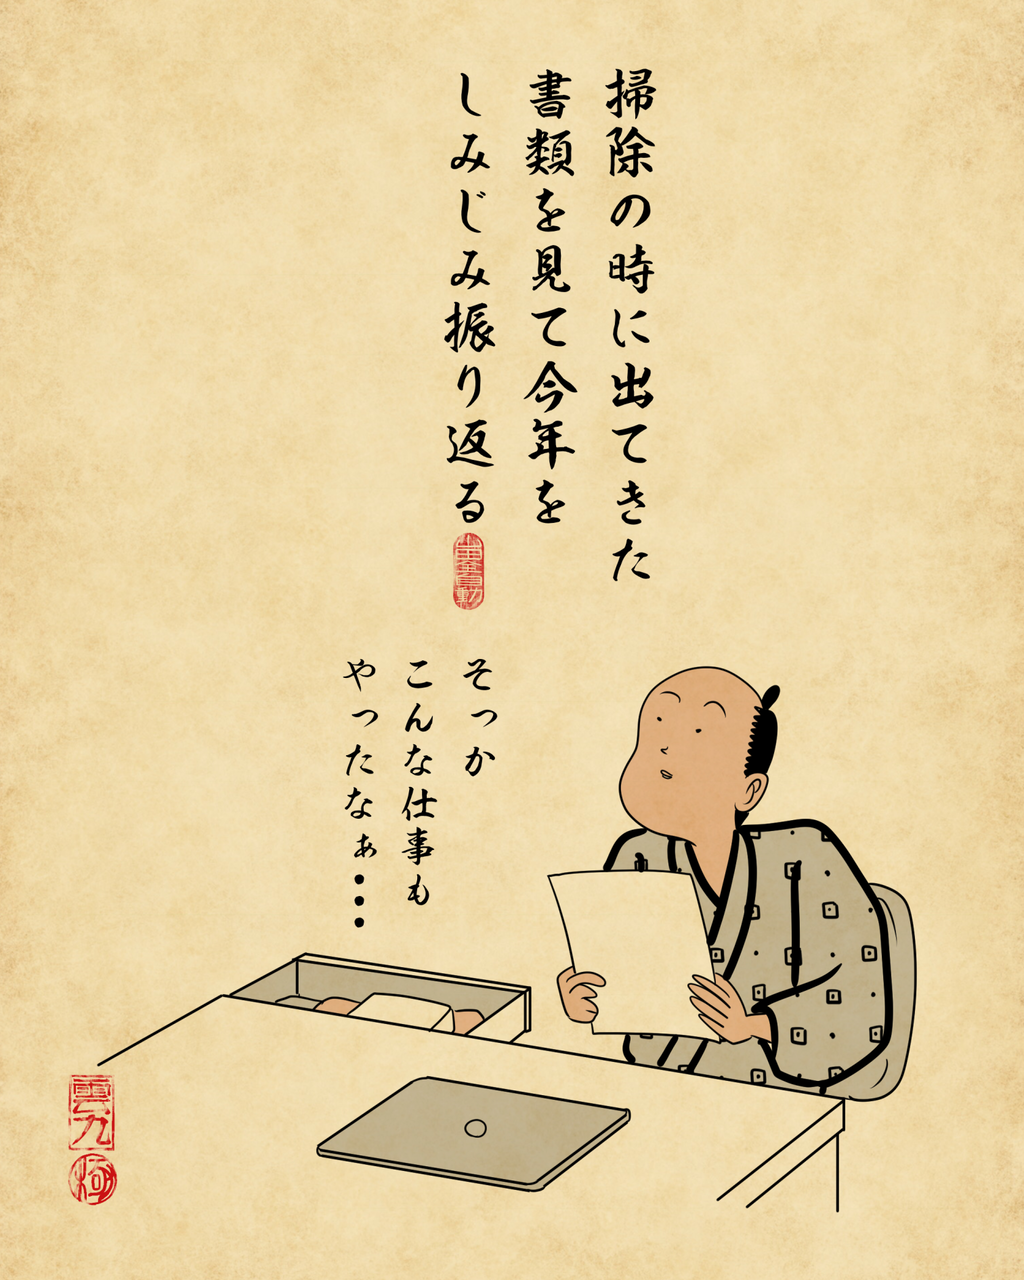 掃除の時に出てきた
書類を見て今年を
しみじみ振り返る
そっか
こんな仕事も
やったなぁ・・・